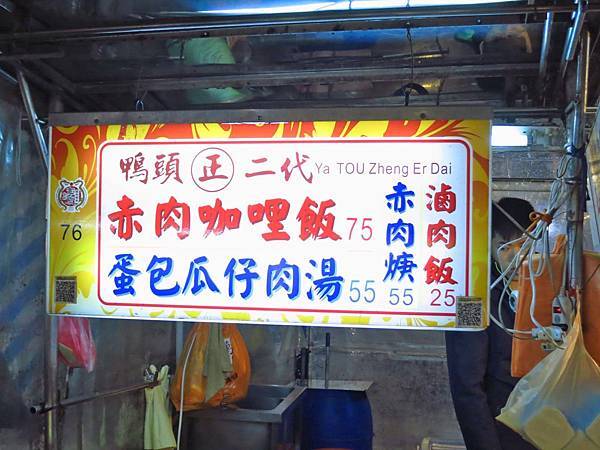 鴨頭 正 二代 Ya TOU Zheng Er Dai
赤肉咖哩飯 75
蛋包瓜仔肉湯 55
赤肉焿 55
滷肉飯 25
76